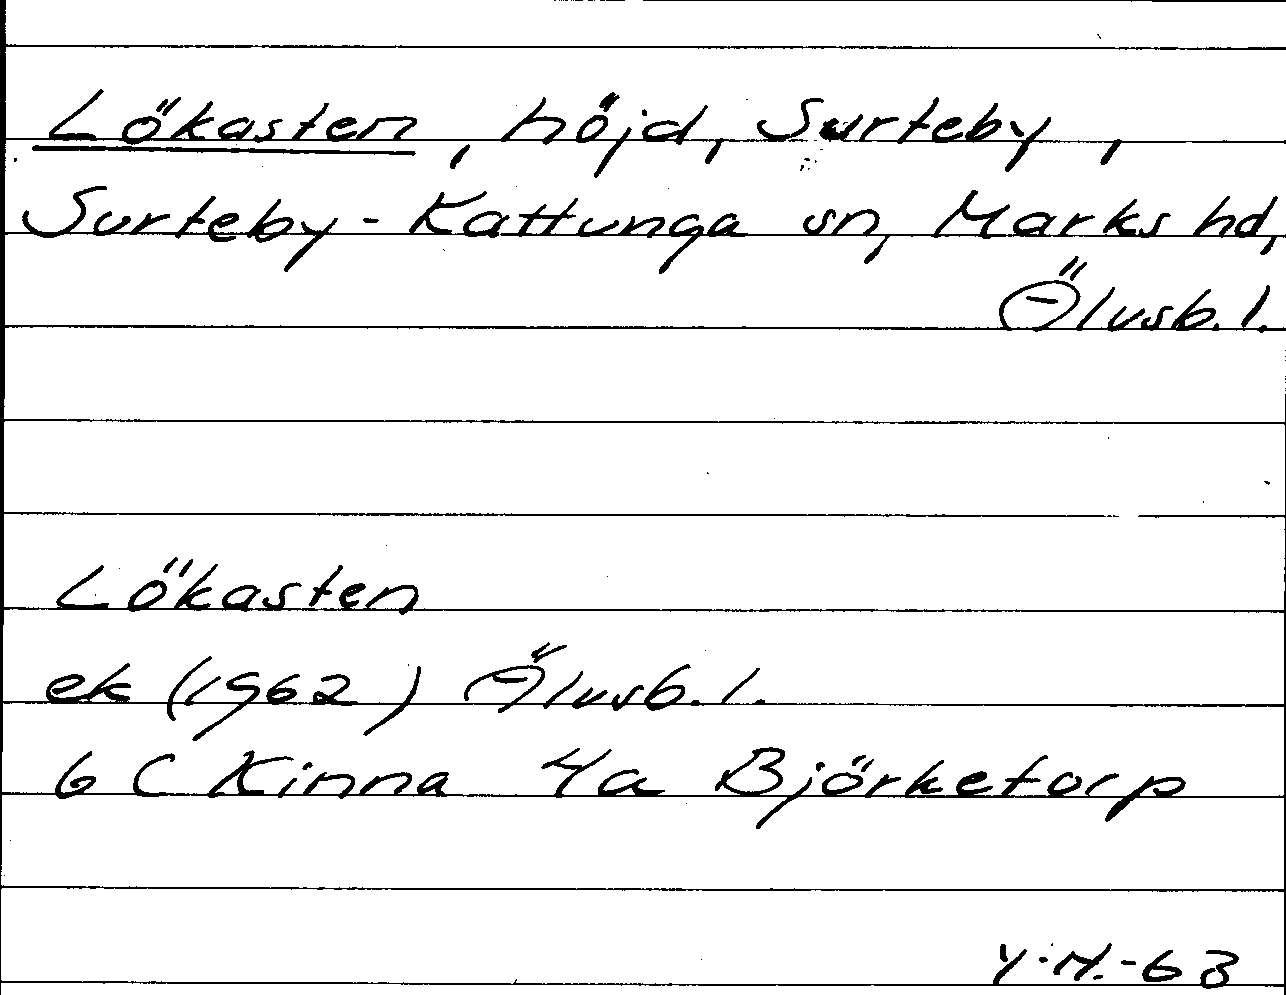 Lökasten, höjd, Surteby,
Surteby-Kattunga sn, Marks hd,
Älvsb. l.
Lökasten
ek (1962) Älvsb. l.
6 C Kinna 4a Björketorp
Y.H.-63